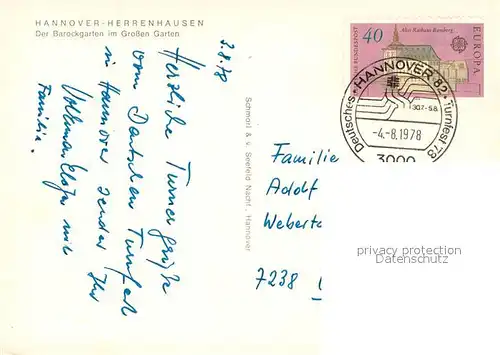 HANNOVER-HERRENHAUSEN
Der Barockgarten im Großen Garten
3.8.78
Herzliche Turnergrüße
vom Deutschen Turnfest
in Hannover sendet Ihr
Volkmar mit
Familie.
Schmorl & v. Seefeld Nachf., Hannover
Altes Rathaus Bamberg
40
BUNDESPOST
EUROPA
HANNOVER 82
Deutsches Turnfest '78
30.7.-5.8.
-4.-8.1978
3000
Familie
Adolf
Weberta
7238
privacy protection
www.ansichtskarten-center.de